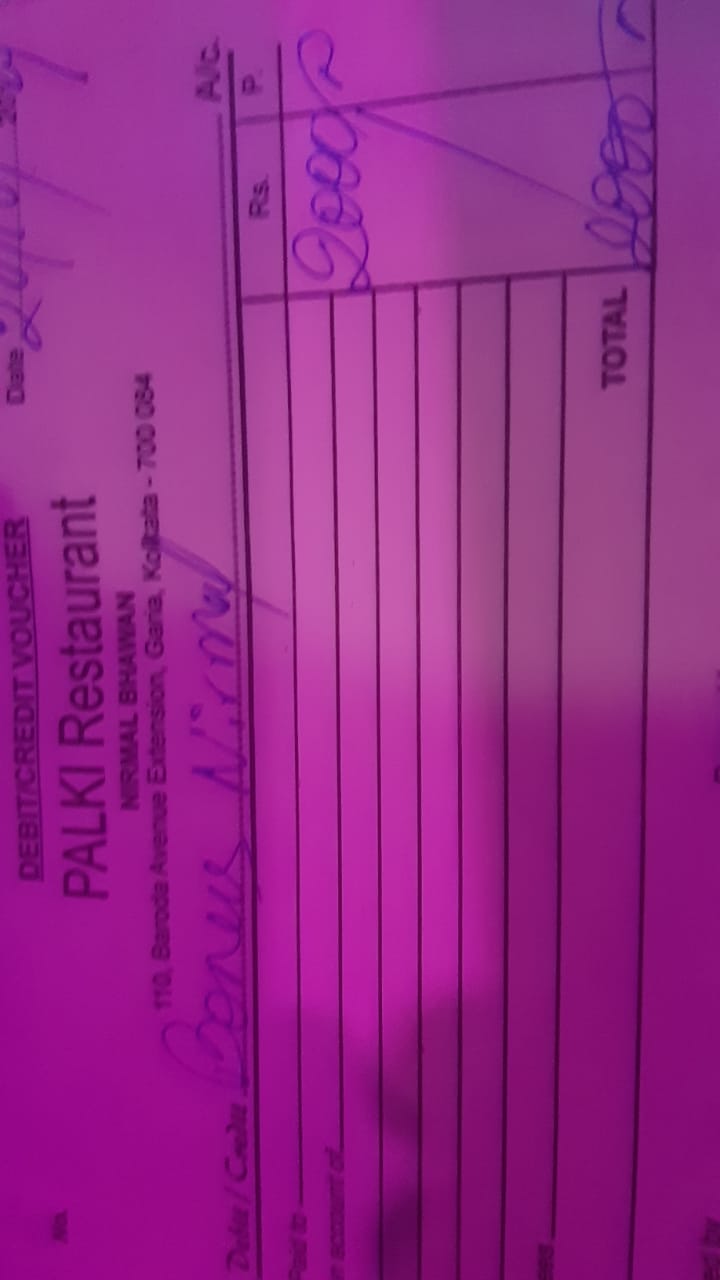 DEBIT/CREDIT VOUCHER
No.
Date
PALKI Restaurant
NIRMAL BHAWAN
110, Baroda Avenue Extension, Garia, Kolkata - 700 084
Debit / Credit Bonus Nirmal A/c.
Rs. P.
Paid to 2000
account of
TOTAL 2000